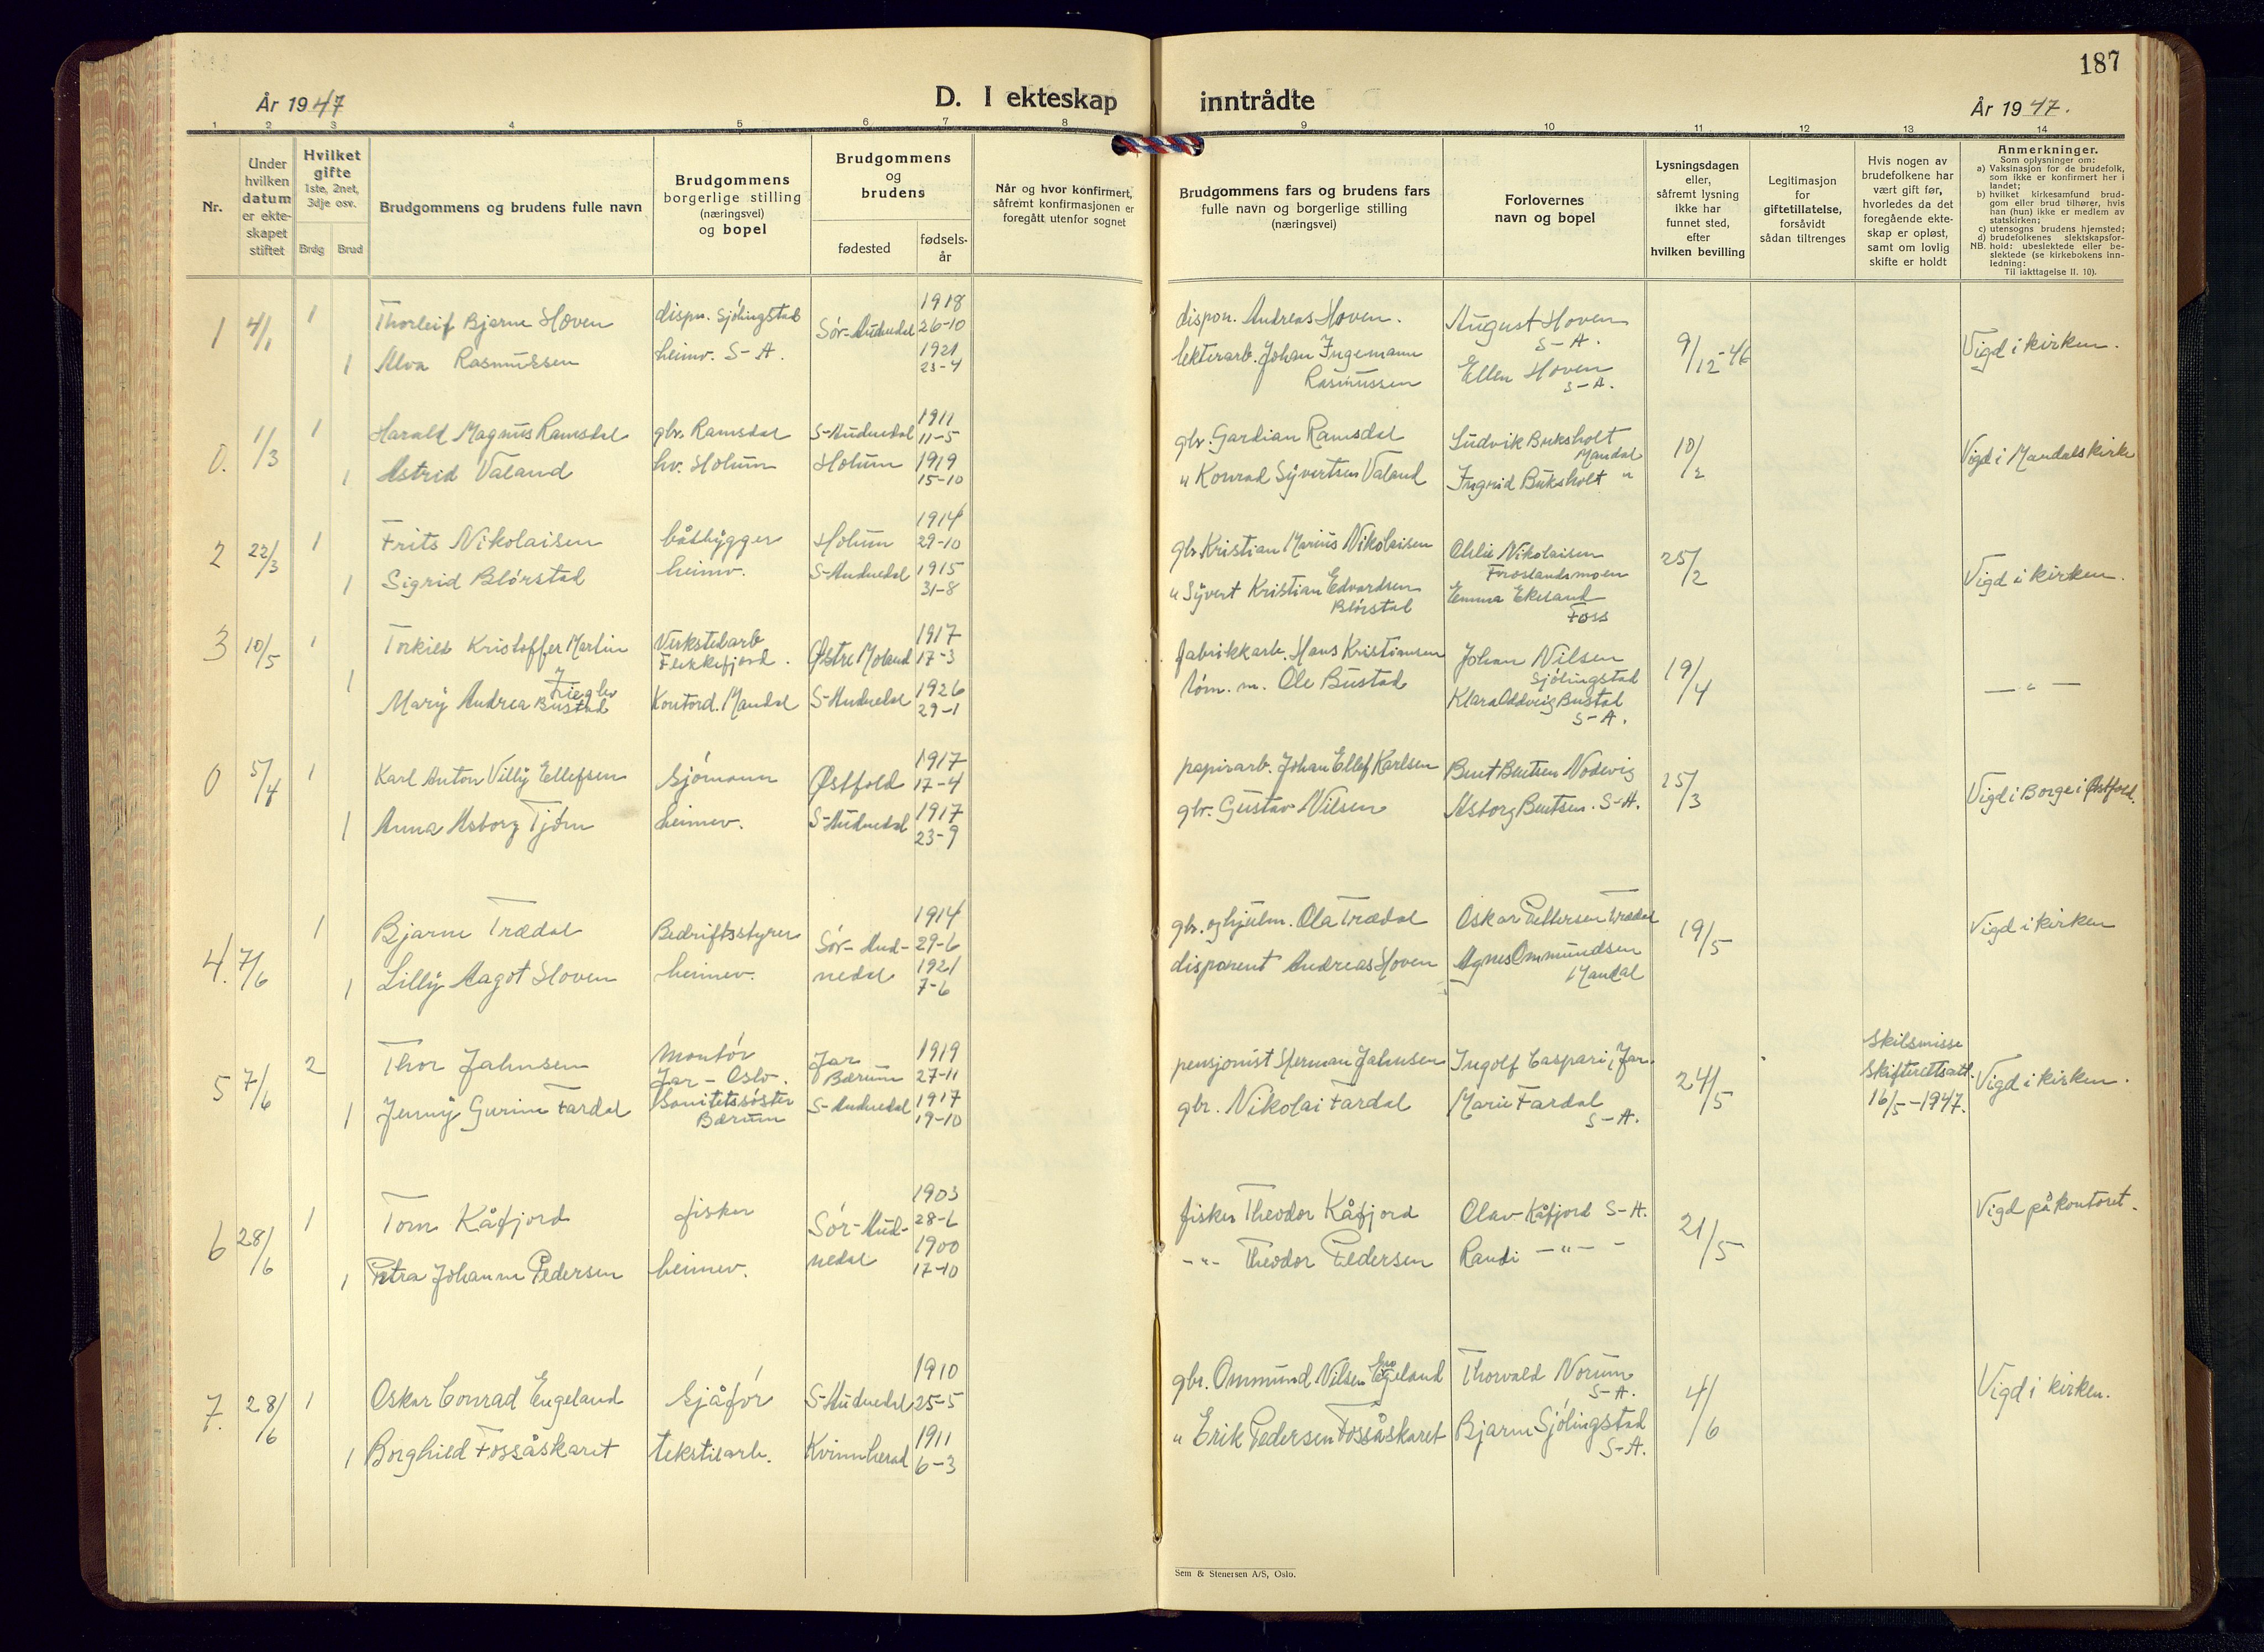 187
År 1947
D. I ekteskap inntrådte
År 1947.
1 2 3 4 5 6 7 8 9 10 11 12 13 14
Nr.
Under hvilken datum er ekte-skapet stiftet
Hvilket gifte
1ste, 2net, 3dje osv.
Brdg Brud
Brudgommens og brudens fulle navn
Brudgommens borgerlige stilling (næringsvei) og bopel
Brudgommens og brudens
fødested
fødsels-år
Når og hvor konfirmert, såfremt konfirmasjonen er foregått utenfor sognet
Brudgommens fars og brudens fars fulle navn og borgerlige stilling (næringsvei)
Forlovernes navn og bopel
Lysningsdagen eller, såfremt lysning ikke har funnet sted, efter hvilken bevilling
Legitimasjon for giftetillatelse, forsåvidt sådan tiltrenges
Hvis nogen av brudefolkene har vært gift før, hvorledes da det foregående ekte-skap er opløst, samt om lovlig skifte er holdt
Anmerkninger.
Som oplysninger om:
a) Vaksinasjon for de brudefolk, som ikke er konfirmert her i landet;
b) hvilket kirkesamfund brud-gom eller brud tilhører, hvis han (hun) ikke er medlem av statskirken;
c) utensogns brudens hjemsted;
d) brudefolkenes slektskapsfor-hold: ubeslektede eller be-slektede (se kirkebokens inn-ledning:
NB.
Til iakttagelse II. 10).
1 4/1 1 Thorleif Bjarne Hoven dispn. Sjölingstad Sör-Audnedal 1918 26-10 dispon. Andreas Hoven. August Hoven S-A. 9/12-46 Vigd i kirken.
1 Alva Rasmussen heimv. S-A. 1921 23-4 Johan Ingemann Rasmussen Ellen Hoven S-A.
0. 1/3 1 Harald Magnus Ramsdal gbr. Ramsdal S-Audnedal 1911 11-5 gbr. Gardian Ramsdal Ludvik Buksholt Mandal 10/2 Vigd i Mandals kirke
1 Astrid Valand hv. Holum Holum 1919 15-10 " Konrad Syvertsen Valand Ingrid Buksholt "
2 22/3 1 Frits Nikolaisen båtbygger Holum 1914 29-10 gbr Kristian Marius Nikolaisen Nikolaisen Froslandsmoen 25/2 Vigd i kirken.
1 Sigrid Blörstad heimv. S-Audnedal 1915 31-8 " Syvert Kristian Edvardsen Blörstad Emma Ekeland Foss
3 10/5 1 Torkild Kristoffer Martin Ziegler Verkstedarb Flekkefjord. Østre Moland 1917 17-3 fabrikkarb. Hans Kristiansen Johan Nilsen Sjölingstad 19/4 — " —
1 Mary Andrea Bustad Kontord. Mandal S-Audnedal 1926 29-1 töm. m. Ole Bustad Klara Oddveig Bustad S-A.
0 5/4 1 Karl Anton Villy Ellefsen Sjömann Østfold 1917 17-4 papirarb. Johan Ellef Karlsen Bent Bentsen Nodevig 25/3 Vigd i Borge i Østfold.
1 Anna Asborg Tjörn heimev. S-Audnedal 1917 23-9 gbr. Gustav Nilsen Asborg Bentsen. S-A.
4. 7/6 1 Bjarne Trædal Bedriftsstyrer Sör-Aud- 1914 29-6 gbr. og hjulm. Ola Trædal Oskar Pettersen Trædal 19/5 Vigd i kirken
1 Lilly Aagot Hoven heimev. nedal 1921 7-6 disponent Andreas Hoven Agnes Ommundsen Mandal
5 7/6 2 Thor Jahnsen Montör Jar - Oslo. Jar Bærum 1919 27-11 pensjonist Herman Jahnsen Ingolf Caspari, Jar. 24/5 Skilsmisse Skifterettsatt. 16/5-1947. Vigd i kirken.
1 Jenny Gurine Fardal Sanitetssöster Bærum S-Audnedal 1917 19-10 gbr. Nikolai Fardal Marie Fardal S-A.
6 28/6 1 Tom Kåfjord fisker Sör-Aud- 1903 28-6 fisker Theodor Kåfjord Olav Kåfjord S-A. 21/5 Vigd på kontoret.
1 Petra Johanne Pedersen heimev. nedal 1900 17-10 -"- Theodor Pedersen Randi -"- -
7. 28/6 1 Oskar Conrad Engeland Sjåför S-Audnedal 1910 25-5 gbr. Ommund Nilsen Engeland Thorvald Norum S-A. 4/6 Vigd i kirken.
1 Borghild Fossåskaret tekstilarb. Kvinnherad 1911 6-3 " Erik Pedersen Fossåskaret Bjarne Sjölingstad S-A.
Sem & Stenersen A/S, Oslo.